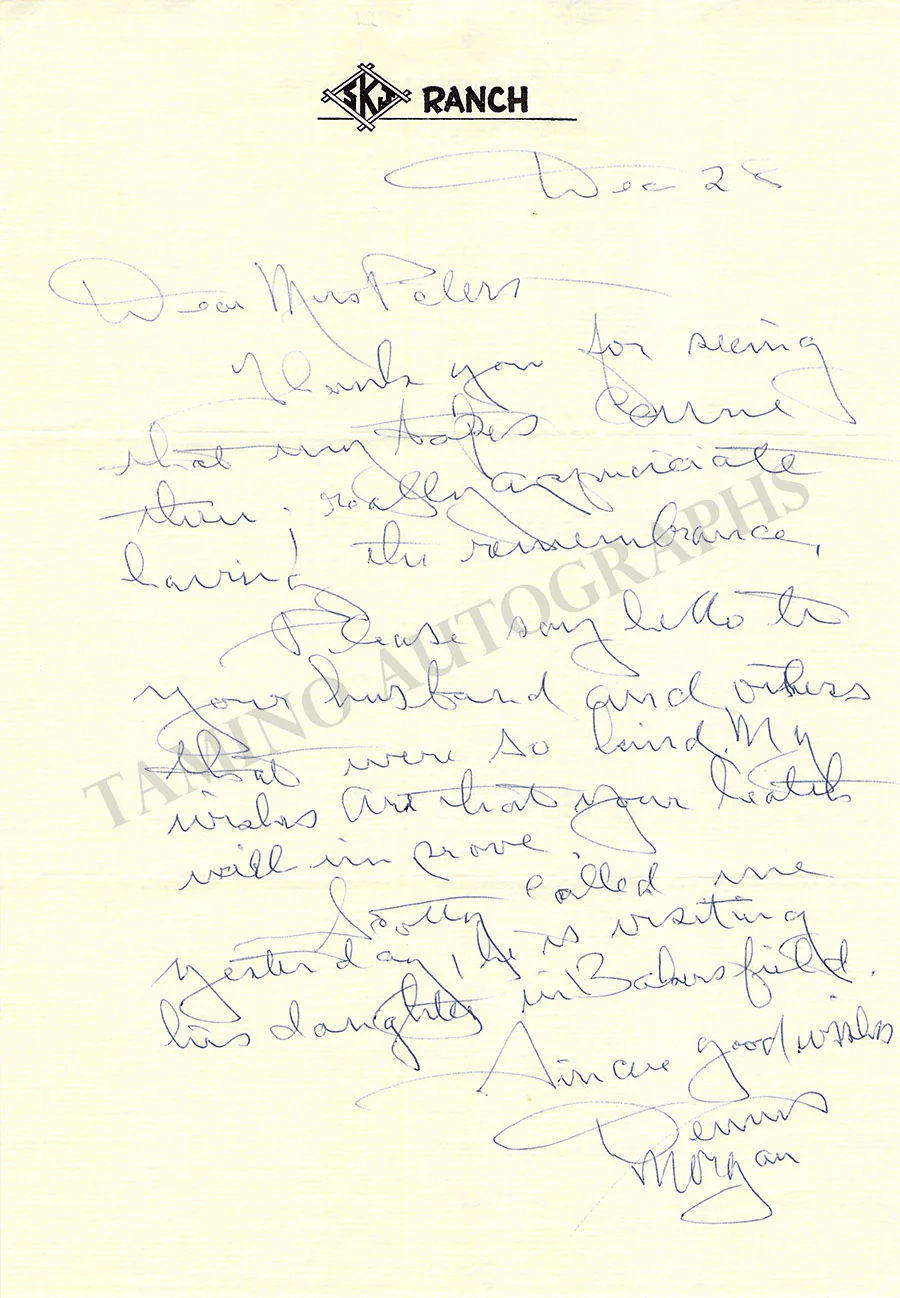 SKJ RANCH
Dec 28
Dear Mrs Peters
Thank you for seeing
that my tapes came
thru. really appreciate
having the remembrance,
Please say hello to
your husband and others
that were so kind. My
wishes are that your health
will improve
Scotty called me
yesterday, he is visiting
his daughter in Bakersfield.
Sincere good wishes
Dennis
Morgan
TAMINO AUTOGRAPHS